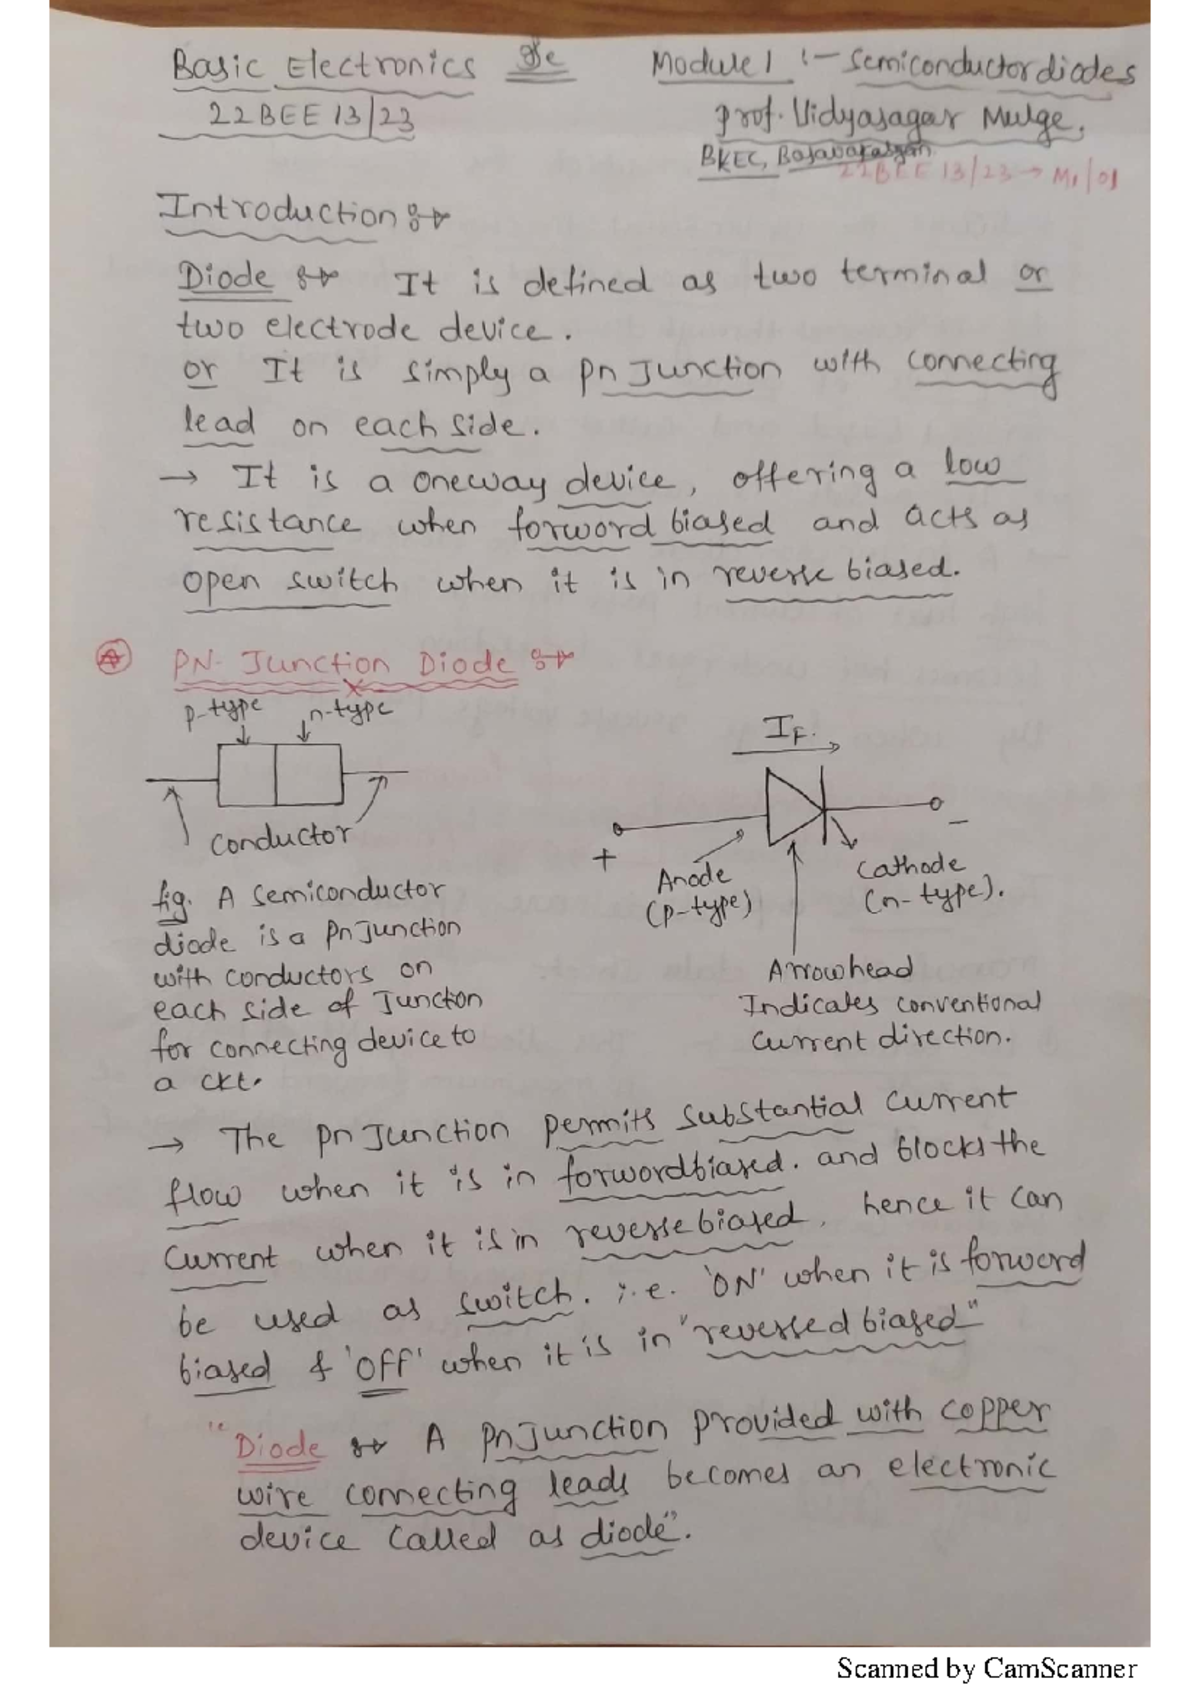 Basic Electronics
Module 1 :- Semiconductor diodes
22BEE 13/23
Prof. Vidyasagar Mulge,
BKEC, Basavakalyan
22BEE 13/23 → M1/01
Introduction :→
Diode :→ It is defined as two terminal or
two electrode device.
or It is simply a Pn Junction with connecting
lead on each side.
→ It is a oneway device, offering a low
resistance when forword biased and acts as
open switch when it is in reverse biased.
PN- Junction Diode :→
p-type n-type
conductor
IF.
+
-
Anode
(p-type)
Cathode
(n-type).
Arrowhead
Indicates conventional
current direction.
fig. A semiconductor
diode is a Pn Junction
with conductors on
each side of Junction
for connecting device to
a ckt.
→ The pn Junction permits substantial current
flow when it is in forwordbiased. and blocks the
current when it is in reverse biased, hence it can
be used as switch. i.e. 'ON' when it is forword
biased & 'OFF' when it is in "reversed biased"
"Diode :→ A PnJunction provided with copper
wire connecting leads becomes an electronic
device called as diode".
Scanned by CamScanner